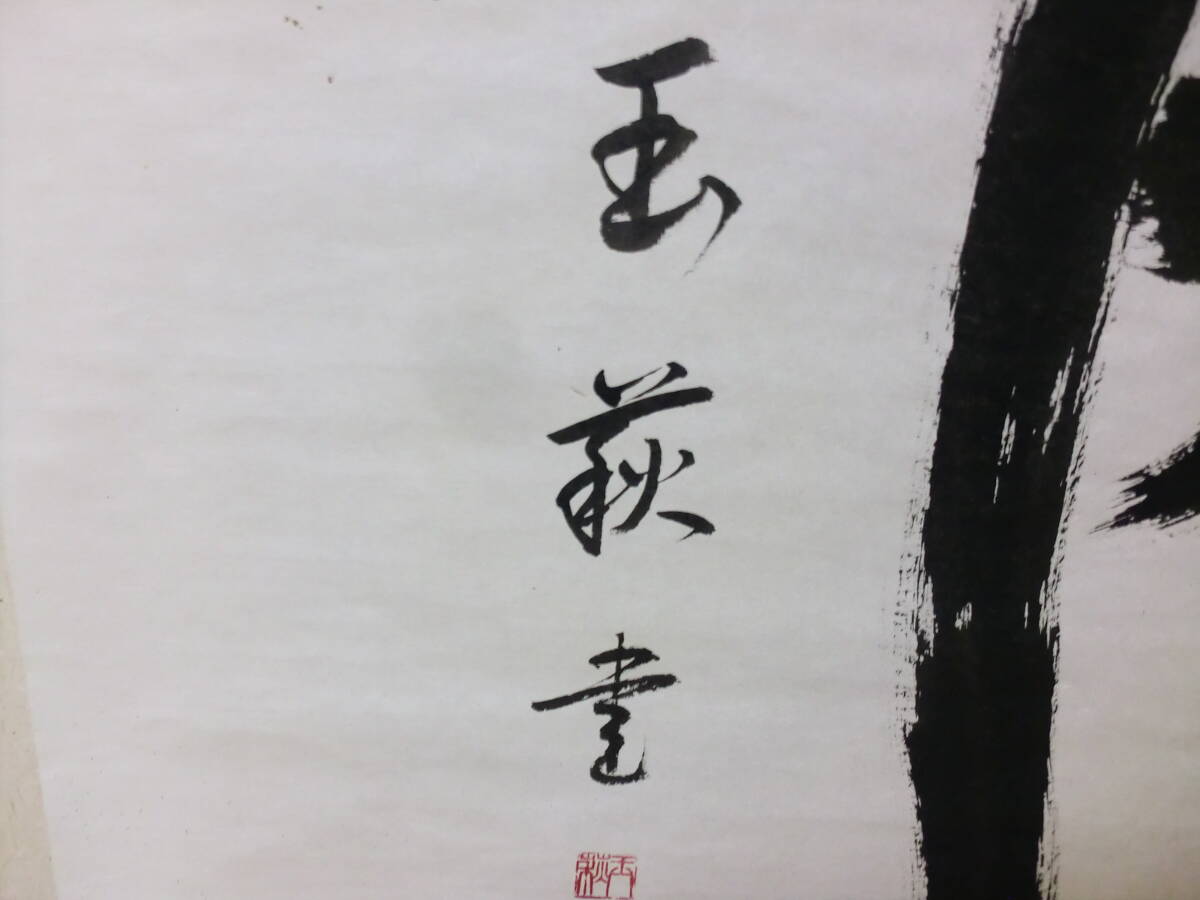 玉萩書